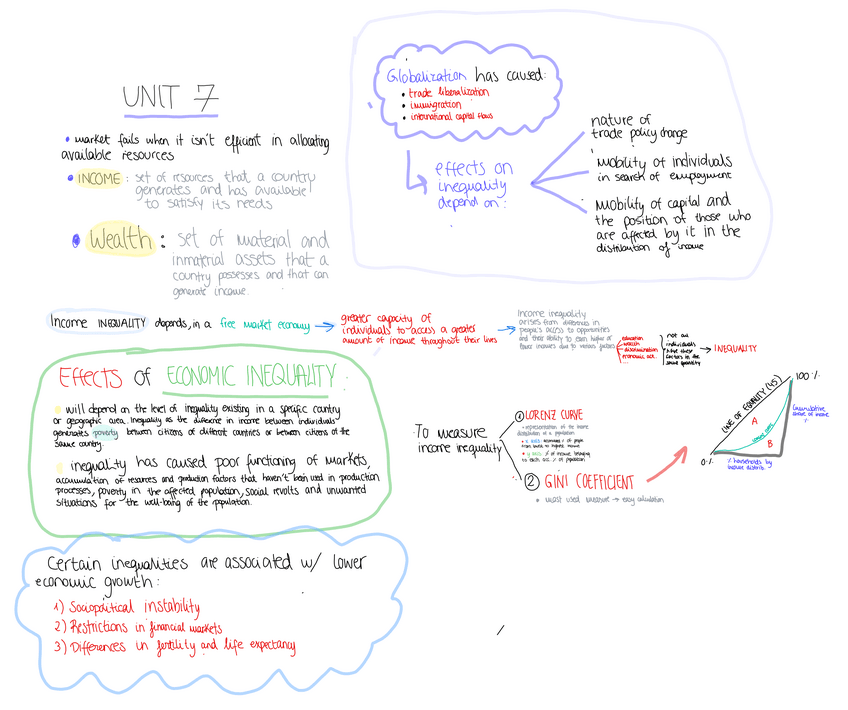 UNIT 7
• market fails when it isn't efficient in allocating
available resources
• INCOME : set of resources that a country
generates and has available
to satisfy its needs
• Wealth : set of material and
inmaterial assets that a
country possesses and that can
generate income.
Globalization has caused:
• trade liberalization
• immigration
• international capital flows
effects on
inequality
depend on:
nature of
trade policy change
mobility of individuals
in search of employment
mobility of capital and
the position of those who
are affected by it in the
distribution of income
Income INEQUALITY depends, in a free market economy
greater capacity of
individuals to access a greater
amount of income throughout their lives
Income inequality
arises from differences in
people's access to opportunities
and their ability to earn higher or
lower incomes due to various factors
education
wealth
discrimination
economic act.
not all
individuals
have these
factors in the
same quantity
INEQUALITY
Effects of ECONOMIC INEQUALITY:
will depend on the level of inequality existing in a specific country
or geographic area. Inequality as the difference in income between individuals
generates poverty between citizens of different countries or between citizens of the
same country.
inequality has caused poor functioning of markets,
accumulation of resources and production factors that haven't been used in production
processes, poverty in the affected population, social revolts and unwanted
situations for the well-being of the population.
Certain inequalities are associated w/ lower
economic growth:
1) Sociopolitical instability
2) Restrictions in financial markets
3) Differences in fertility and life expectancy
To measure
income inequality
① LORENZ CURVE
• representation of the income
distribution of a population
from lowest to highest income
to each acc. % of population
② GINI COEFFICIENT
• most used measure → easy calculation
LINE OF EQUALITY (45)
100 %
A
B
Cumulative
share of income
%
0%
% households by
income distrib.